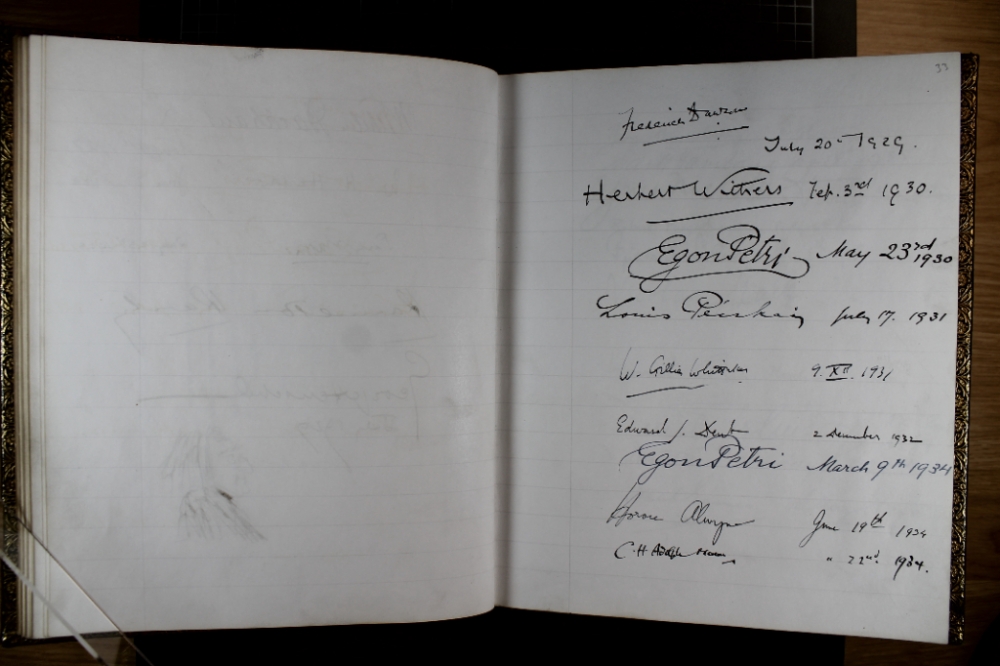 33
Frederick Dawson
July 20th 1929.
Herbert Withers Feb. 3rd 1930.
Egon Petri May 23rd 1930
Louis Persinger July 17. 1931
W. Gillies Whittaker 9. XII. 1931
Edward J. Dent 2 December 1932
Egon Petri March 9th 1934
Horace Alwyne June 19th 1934
C. H. " 22nd. 1934.